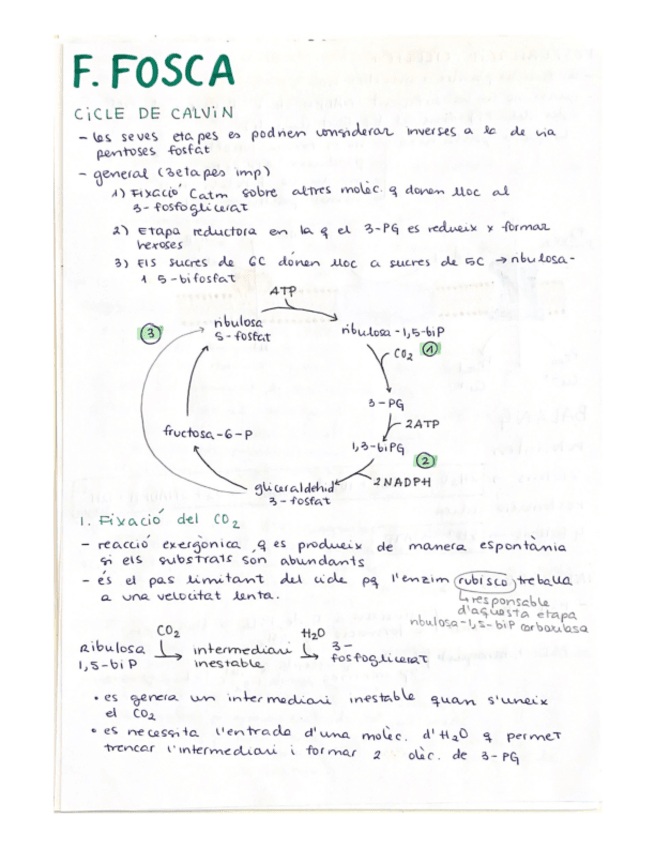 F. FOSCA
CiCLE DE CALViN
- Les seves etapes es podrien considerar inverses a la de via
pentoses fosfat
- general (3 etapes imp)
1) Fixació Catm sobre altres molèc. q donen lloc al
3-fosfoglicerat
2) Etapa reductora en la q el 3-PG es redueix x formar
hexoses
3) Els sucres de 6C donen lloc a sucres de 5C → ribulosa-
1 5-bifosfat
ATP
3
ribulosa
5-fosfat
ribulosa-1,5-biP
CO2
1
3-PG
2ATP
fructosa-6-P
1,3-biPG
2
2NADPH
gliceraldehid
3-fosfat
1. Fixació del CO2
- reacció exergònica q es produeix de manera espontània
si els substrats són abundants
- és el pas limitant del cicle pq l'enzim rubisco treballa
a una velocitat lenta.
↳ responsable
d'aquesta etapa
ribulosa-1,5-biP carboxilasa
CO2
H2O
ribulosa
1,5-biP
intermediari
inestable
3-
fosfoglicerat
• es genera un intermediari inestable quan s'uneix
el CO2
• es necessita l'entrada d'una molèc. d'H2O q permet
trencar l'intermediari i formar 2 olèc. de 3-PG